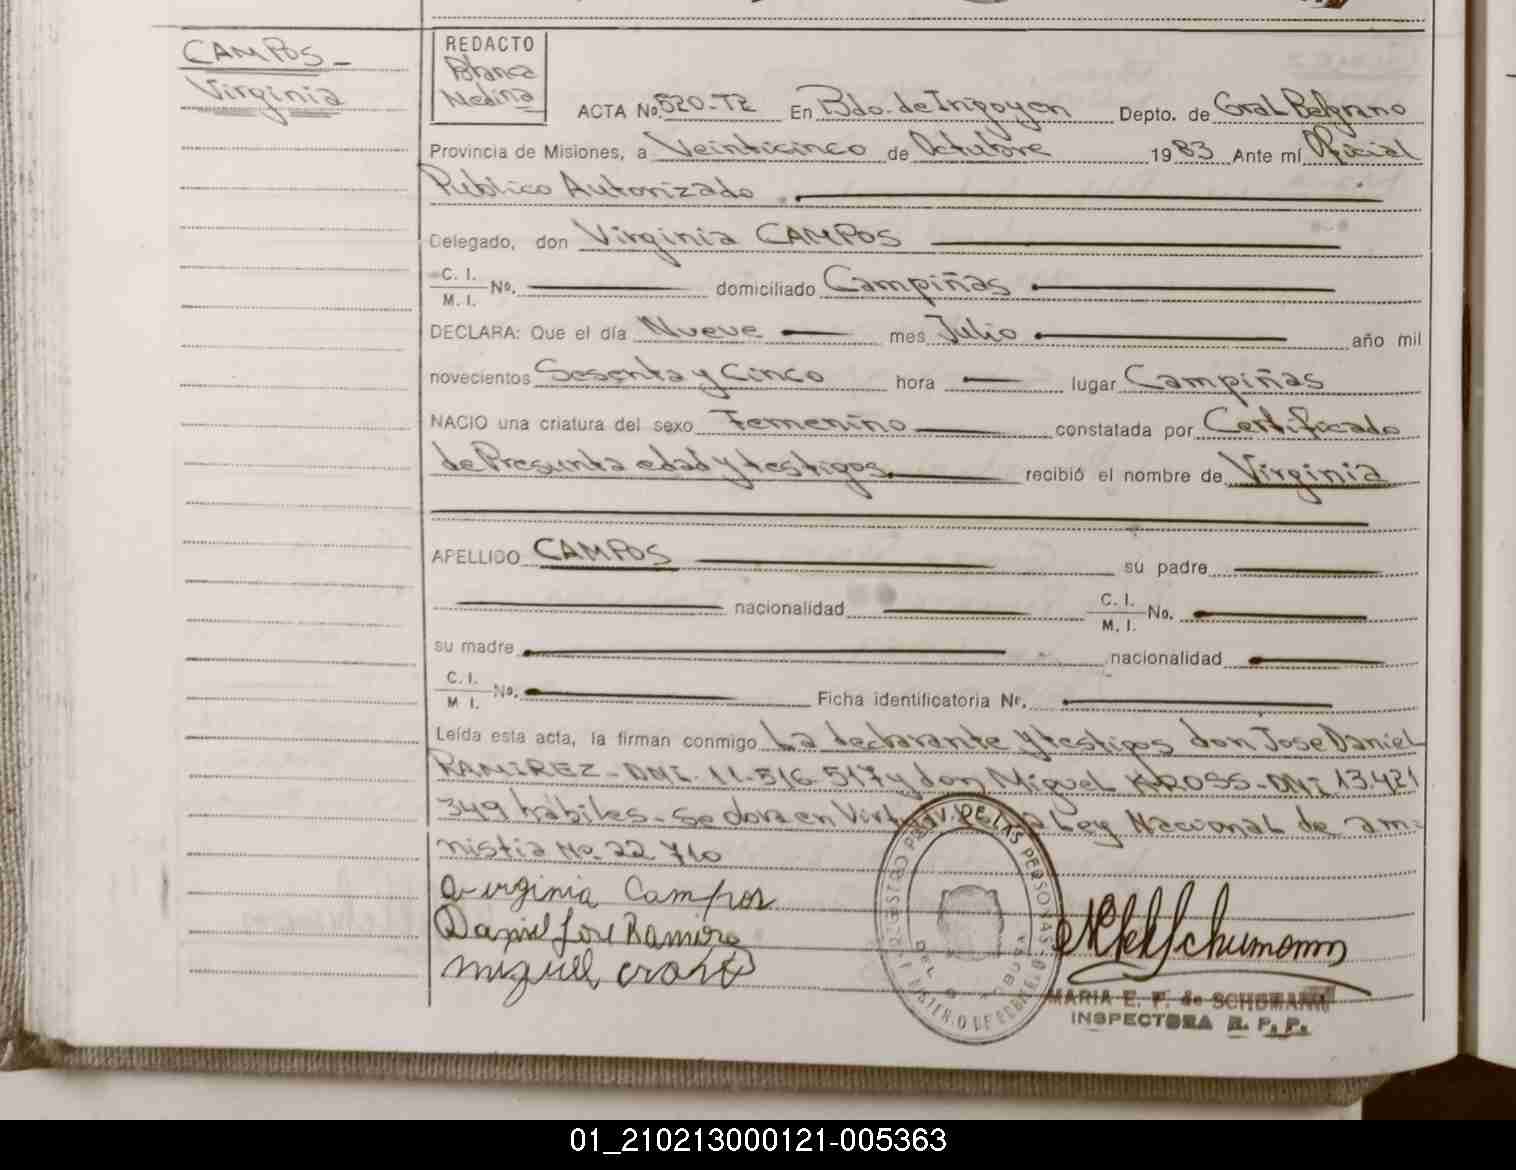 CAMPOS -
Virginia
REDACTO
Blanca
Medina
ACTA No. 520-T2 En Bdo. de Irigoyen Depto. de Gral Belgrano
Provincia de Misiones, a Veinticinco de Octubre 1983 Ante mí Oficial
Publico Autorizado
Delegado, don Virginia CAMPOS
C. I.
M. I. No. domiciliado Campiñas
DECLARA: Que el día Nueve mes Julio año mil
novecientos Sesenta y Cinco hora lugar Campiñas
NACIO una criatura del sexo Femenino constatada por Certificado
de Presunta edad y testigos. recibió el nombre de Virginia
APELLIDO CAMPOS su padre
nacionalidad C. I.
M. I. No.
su madre nacionalidad
C. I.
M I. No. Ficha identificatoria Nr.
Leída esta acta, la firman conmigo La declarante y testigos don Jose Daniel
RAMIREZ - DNI. 11-516-517 y don Miguel KROSS - DNI 13.421
349 hábiles - Se dora en Ley Nacional de am-
nistia No. 22 710
Virginia Campos
Daniel Jose Ramire
miguel
REGISTRO PROV. DE LAS PERSONAS
MINISTERIO DE GOBIERNO
Schumann
MARIA E. F. de SCHUMANN
INSPECTORA R. P. P.
01_210213000121-005363